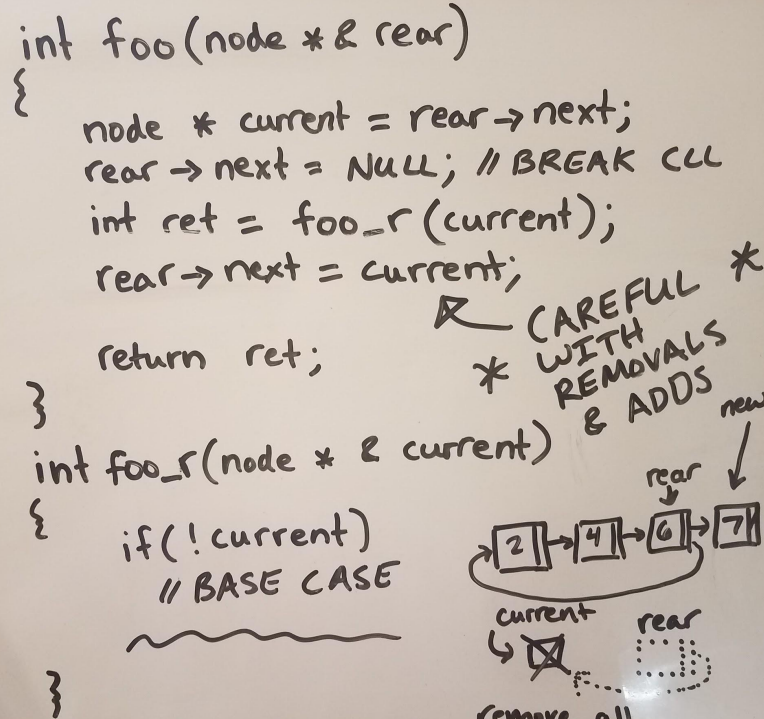 int foo(node * & rear)
{
node * current = rear->next;
rear->next = NULL; // BREAK CLL
int ret = foo_r(current);
rear->next = current;
return ret;
}
* CAREFUL *
WITH
REMOVALS
& ADDS
int foo_r(node * & current)
{
if(!current)
// BASE CASE
}
new
rear
2 4 6 7
current
rear
remove all